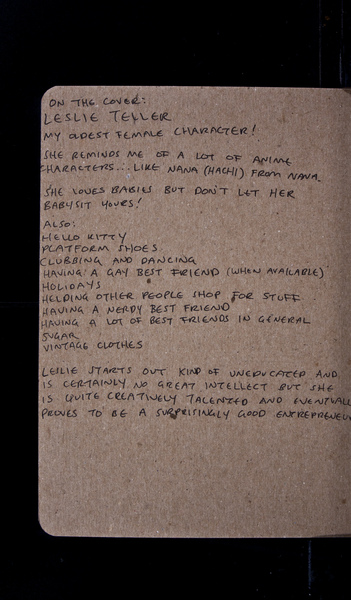 ON THE COVER:
LESLIE TELLER
MY OLDEST FEMALE CHARACTER!
SHE REMINDS ME OF A LOT OF ANIME
CHARACTERS... LIKE NANA (HACHI) FROM NANA.
SHE LOVES BABIES BUT DON'T LET HER
BABYSIT YOURS!
ALSO:
HELLO KITTY
PLATFORM SHOES
CLUBBING AND DANCING
HAVING A GAY BEST FRIEND (WHEN AVAILABLE)
HOLIDAYS
HELPING OTHER PEOPLE SHOP FOR STUFF
HAVING A NERDY BEST FRIEND
HAVING A LOT OF BEST FRIENDS IN GENERAL
SUGAR
VINTAGE CLOTHES
LESLIE STARTS OUT KIND OF UNEDUCATED AND
IS CERTAINLY NO GREAT INTELLECT BUT SHE
IS QUITE CREATIVELY TALENTED AND EVENTUALL
PROVES TO BE A SURPRISINGLY GOOD ENTREPRENEU